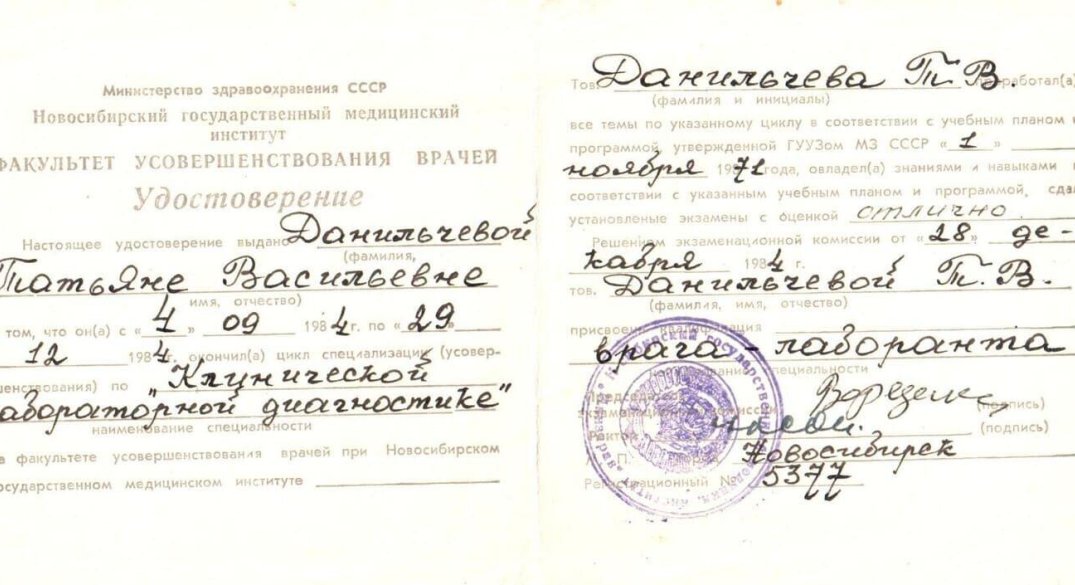 Министерство здравоохранения СССР
Новосибирский государственный медицинский
институт
ФАКУЛЬТЕТ УСОВЕРШЕНСТВОВАНИЯ ВРАЧЕЙ
Удостоверение
Настоящее удостоверение выдано Данильчевой
(фамилия,
Татьяне Васильевне
имя, отчество)
том, что он(а) с « 4 » 09 1984 г. по « 29 »
12 1984 г. окончил(а) цикл специализации (усовер-
шенствования) по "Клунической
лабораторной диагностике"
наименование специальности
на факультете усовершенствования врачей при Новосибирском
государственном медицинском институте
Тов. Данильчева Т. В. проработал(а)
(фамилия и инициалы)
все темы по указанному циклу в соответствии с учебным планом и
программой, утвержденной ГУУЗом МЗ СССР « 1 »
ноября 1971 года, овладел(а) знаниями и навыками в
соответствии с указанным учебным планом и программой, сдал
установленые экзамены с оценкой отлично.
Решением экзаменационной комиссии от « 28 » де-
кабря 1984 г.
тов. Данильчевой Т. В.
(фамилия, имя, отчество)
присвоена квалификация
врача-лаборанта
наименование специальности
Председатель
экзаменационной комиссии (подпись)
Ректор (подпись)
Новосибирск
Регистрационный № 5377